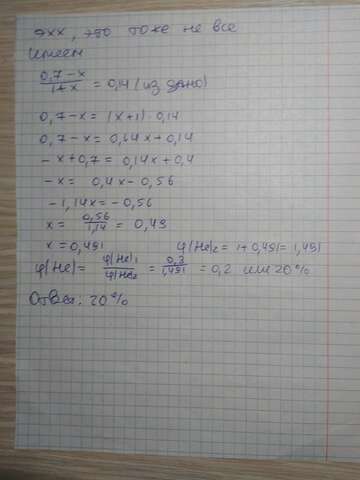 эхх, это тоже не все
Имеем
0,7-x / 1+x = 0,14 (из дано)
0,7-x = (x+1)·0,14
0,7-x = 0,14x+0,14
-x+0,7 = 0,14x+0,4
-x = 0,4x-0,56
-1,14x = -0,56
x = 0,56/1,14 = 0,49
x = 0,491 φ(He)₂ = 1+0,491 = 1,491
φ(He) = φ(He)₁/φ(He)₂ = 0,3/1,491 = 0,2 или 20%
Ответ: 20%